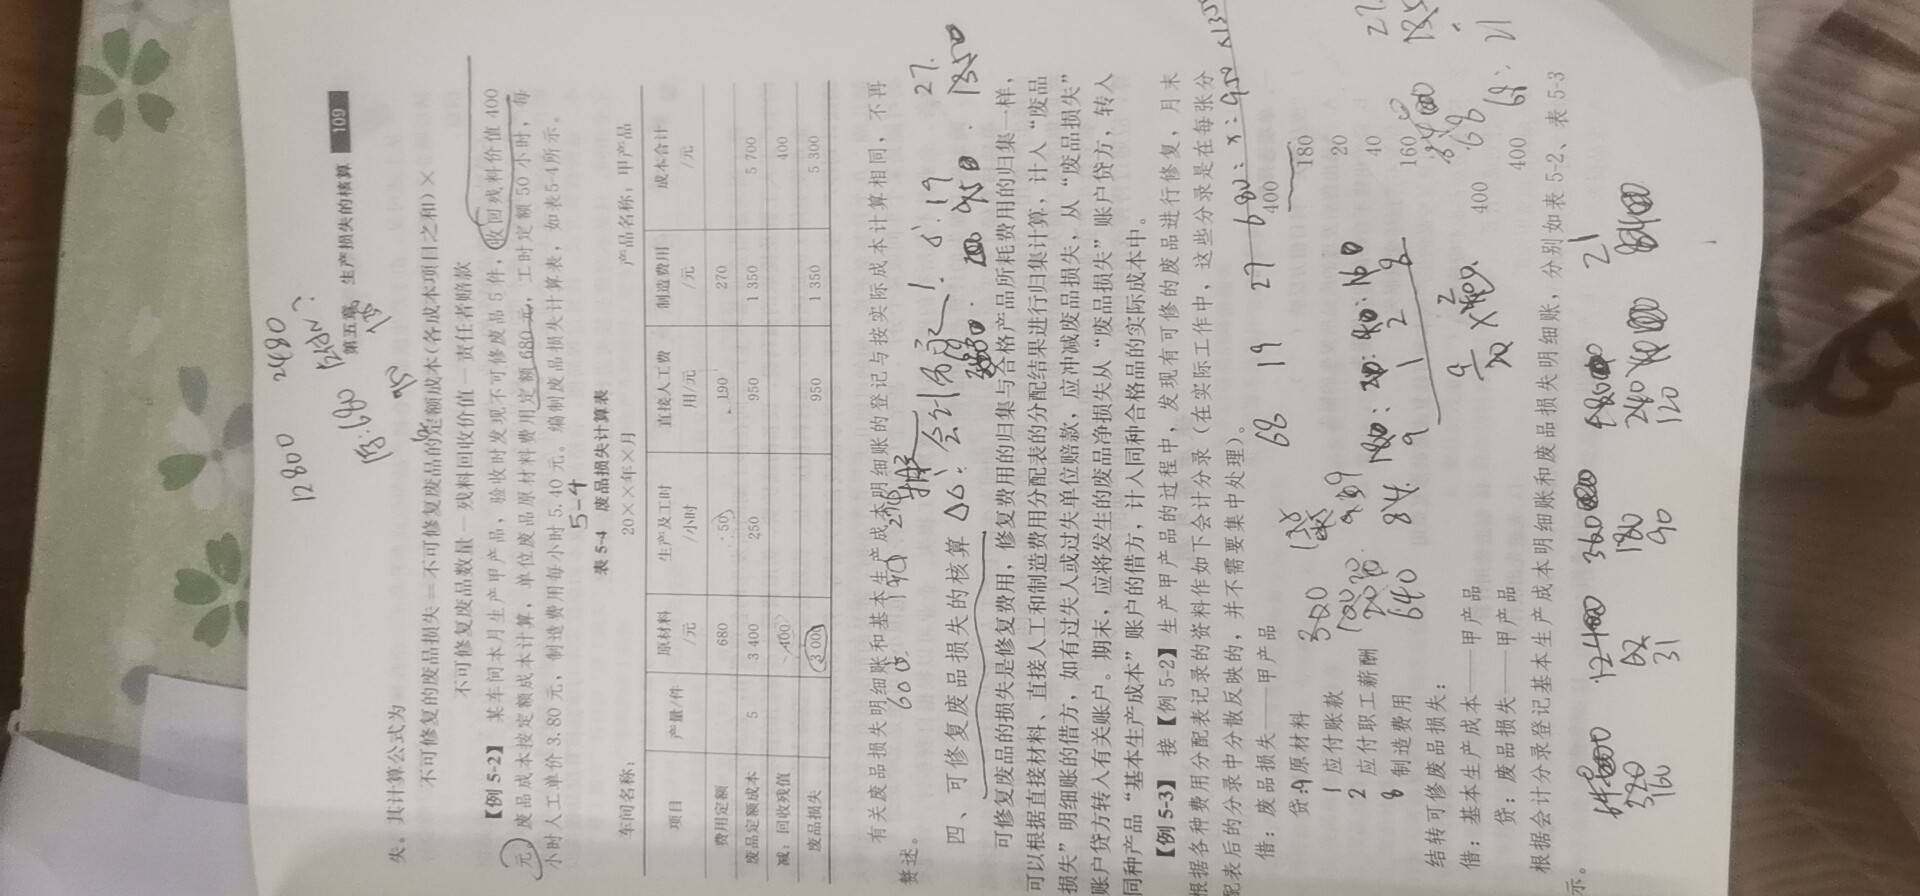 12800 2480
第五章 生产损失的核算 109
失。其计算公式为
不可修复的废品损失＝不可修复废品的定额成本(各成本项目之和)×
不可修复废品数量－残料回收价值－责任者赔款
【例 5-2】 某车间本月生产甲产品，验收时发现不可修废品 5 件，收回残料价值 400
元，废品成本按定额成本计算，单位废品原材料费用定额 680 元，工时定额 50 小时，每
小时人工单价 3.80 元，制造费用每小时 5.40 元。编制废品损失计算表，如表 5-4 所示。
5-4
表 5-4 废品损失计算表
车间名称： 20××年×月 产品名称：甲产品
项目 产量/件 原材料/元 生产及工时/小时 直接人工费用/元 制造费用/元 成本合计/元
费用定额 680 50 190 270
废品定额成本 5 3 400 250 950 1 350 5 700
减：回收残值 400 400
废品损失 3 000 950 1 350 5 300
有关废品损失明细账和基本生产成本明细账的登记与按实际成本计算相同，不再
赘述。
四、可修复废品损失的核算
可修复废品的损失是修复费用，修复费用的归集与合格产品所耗费用的归集一样，
可以根据直接材料、直接人工和制造费用分配表的分配结果进行归集计算，计入“废品
损失”明细账的借方，如有过失人或过失单位赔款，应冲减废品损失，从“废品损失”
账户贷方转入有关账户。期末，应将发生的废品净损失从“废品损失”账户贷方，转入
同种产品“基本生产成本”账户的借方，计入同种合格品的实际成本中。
【例 5-3】 接【例 5-2】生产甲产品的过程中，发现有可修的废品进行修复，月末
根据各种费用分配表记录的资料作如下会计分录（在实际工作中，这些分录是在每张分
配表后的分录中分散反映的，并不需要集中处理）。
68 19 27
借：废品损失——甲产品 400
贷：原材料 180
应付账款 20
应付职工薪酬 40
制造费用 160
640 84
结转可修废品损失：
借：基本生产成本——甲产品 400
贷：废品损失——甲产品 400
根据会计分录登记基本生产成本明细账和废品损失明细账，分别如表 5-2、表 5-3
示。
320 62 180 240
160 31 90 120